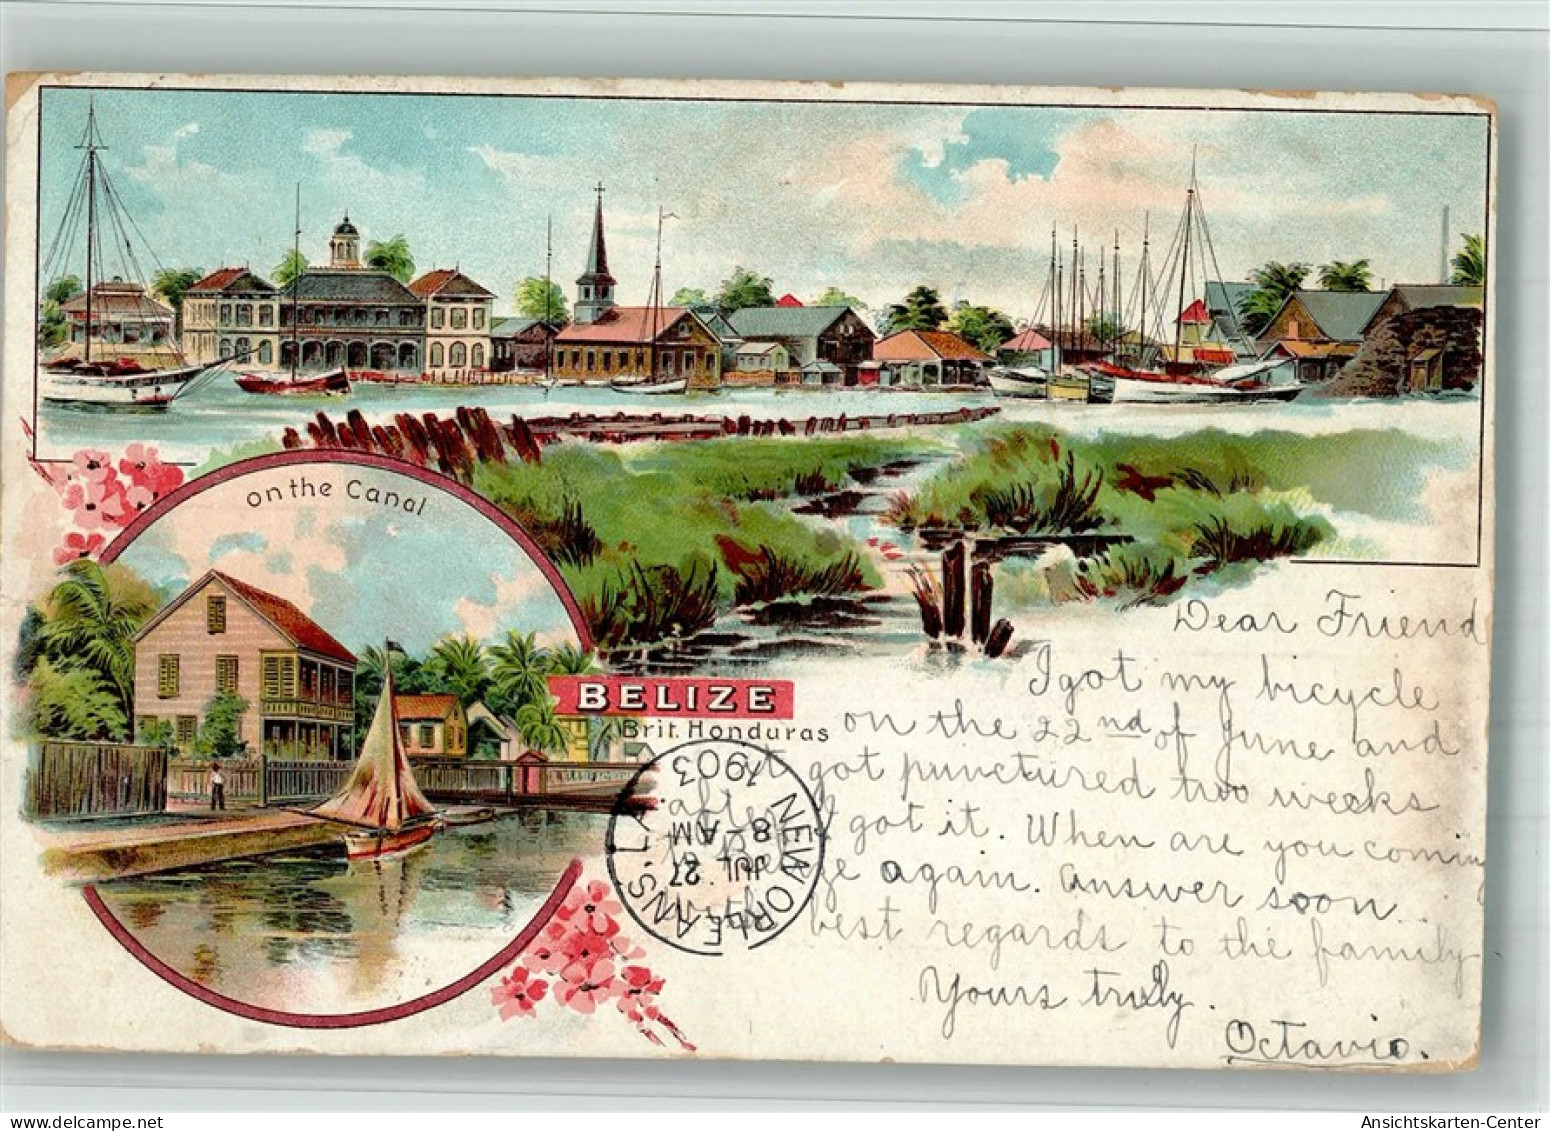 on the Canal
BELIZE
Brit. Honduras
NEW ORLEANS, LA.
JUL 27
8-AM
1903
Dear Friend
I got my bicycle
on the 22nd of June and
it got punctured two weeks
after I got it. When are you coming
again. Answer soon
best regards to the family
Yours truly.
Octavio.
Ansichtskarten-Center